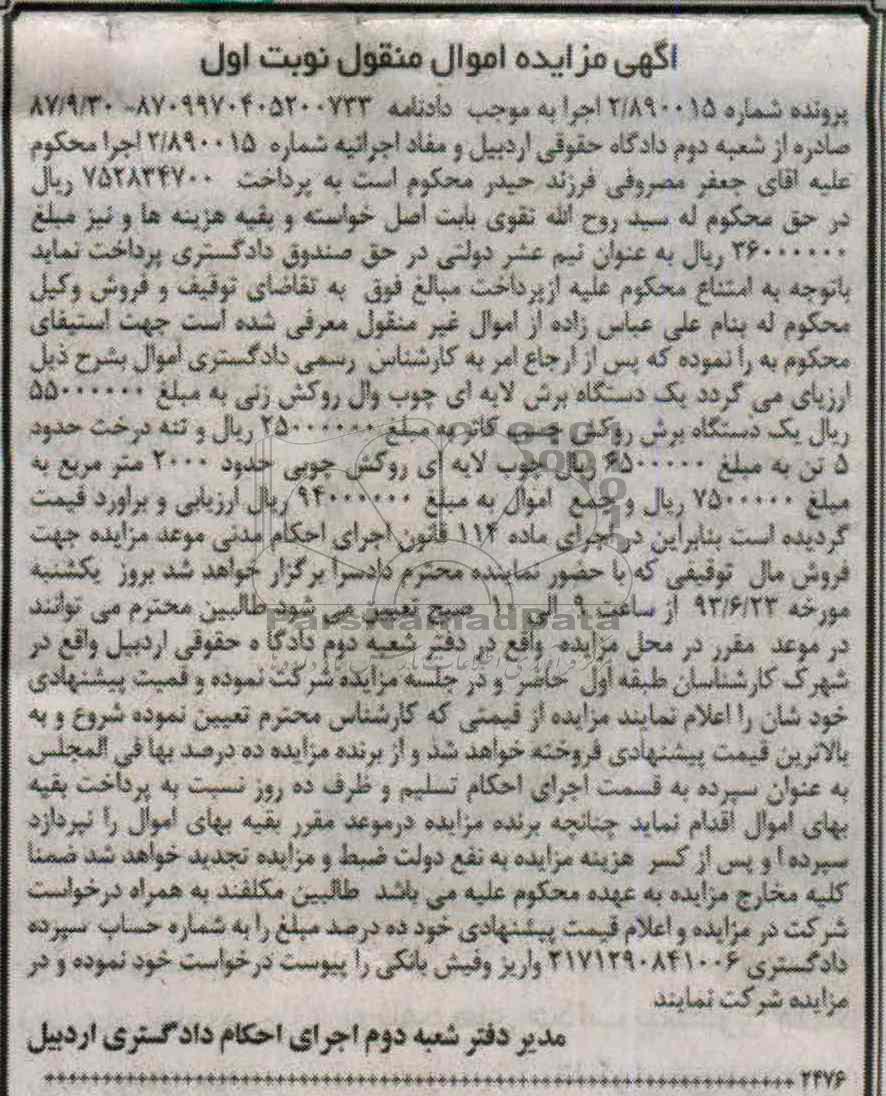 اگهی مزایده اموال منقول نوبت اول
پرونده شماره ۲/۸۹۰۰۱۵ اجرا به موجب دادنامه ۸۷۰۹۹۷۰۴۰۵۲۰۰۷۳۳- ۸۷/۹/۳۰
صادره از شعبه دوم دادگاه حقوقی اردبیل و مفاد اجرائیه شماره ۲/۸۹۰۰۱۵ اجرا محکوم
علیه اقای جعفر مصروفی فرزند حیدر محکوم است به پرداخت ۷۵۲۸۳۴۷۰۰ ریال
در حق محکوم له سید روح الله تقوی بابت اصل خواسته و بقیه هزینه ها و نیز مبلغ
۳۶۰۰۰۰۰۰ ریال به عنوان نیم عشر دولتی در حق صندوق دادگستری پرداخت نماید
باتوجه به امتناع محکوم علیه ازپرداخت مبالغ فوق به تقاضای توقیف و فروش وکیل
محکوم له بنام علی عباس زاده از اموال غیر منقول معرفی شده است جهت استیفای
محکوم به را نموده که پس از ارجاع امر به کارشناس رسمی دادگستری اموال بشرح ذیل
ارزیای می گردد یک دستگاه برش لایه ای چوب وال روکش زنی به مبلغ ۵۵۰۰۰۰۰۰
ریال یک دستگاه برش روکش چسب کاتر به مبلغ ۲۵۰۰۰۰۰۰ ریال و تنه درخت حدود
۵ تن به مبلغ ۶۵۰۰۰۰۰ ریال چوب لایه ای روکش چوبی حدود ۲۰۰۰ متر مربع به
مبلغ ۷۵۰۰۰۰۰ ریال و جمع اموال به مبلغ ۹۴۰۰۰۰۰۰ ریال ارزیابی و براورد قیمت
گردیده است بنابراین در اجرای ماده ۱۱۴ قانون اجرای احکام مدنی موعد مزایده جهت
فروش مال توقیفی که با حضور نماینده محترم دادسرا برگزار خواهد شد بروز یکشنبه
مورخه ۹۳/۶/۲۳ از ساعت ۹ الی ۱۰ صبح تعیین می شود طالبین محترم می توانند
در موعد مقرر در محل مزایده واقع در دفتر شعبه دوم دادگا ه حقوقی اردبیل واقع در
شهرک کارشناسان طبقه اول حاضر و در جلسه مزایده شرکت نموده و قمیت پیشنهادی
خود شان را اعلام نمایند مزایده از قیمتی که کارشناس محترم تعیین نموده شروع و به
بالاترین قیمت پیشنهادی فروخته خواهد شد و از برنده مزایده ده درصد بها فی المجلس
به عنوان سپرده به قسمت اجرای احکام تسلیم و ظرف ده روز نسبت به پرداخت بقیه
بهای اموال اقدام نماید چنانچه برنده مزایده درموعد مقرر بقیه بهای اموال را نپردازد
سپرده ا و پس از کسر هزینه مزایده به نفع دولت ضبط و مزایده تجدید خواهد شد ضمنا
کلیه مخارج مزایده به عهده محکوم علیه می باشد طالبین مکلفند به همراه درخواست
شرکت در مزایده و اعلام قیمت پیشنهادی خود ده درصد مبلغ را به شماره حساب سپرده
دادگستری ۲۱۷۱۲۹۰۸۴۱۰۰۶ واریز وفیش بانکی را پیوست درخواست خود نموده و در
مزایده شرکت نمایند
مدیر دفتر شعبه دوم اجرای احکام دادگستری اردبیل
۲۴۷۶
ParsNamadData